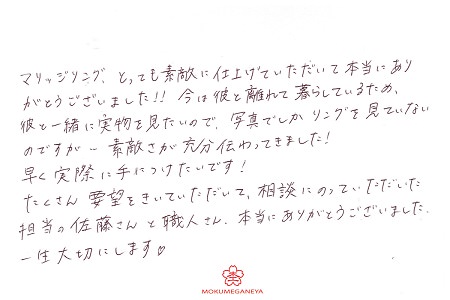 マリッジリング、とっても素敵に仕上げていただいて本当にあり
がとうございました!! 今は彼と離れて暮らしているため、
彼と一緒に実物を見たいので、写真でしかリングを見ていない
のですが〜素敵さが充分伝わってきました!
早く実際に手につけたいです!
たくさん要望をきいていただいて、相談にのっていただいた
担当の佐藤さんと職人さん、本当にありがとうございました.
一生大切にします♡
MOKUMEGANEYA